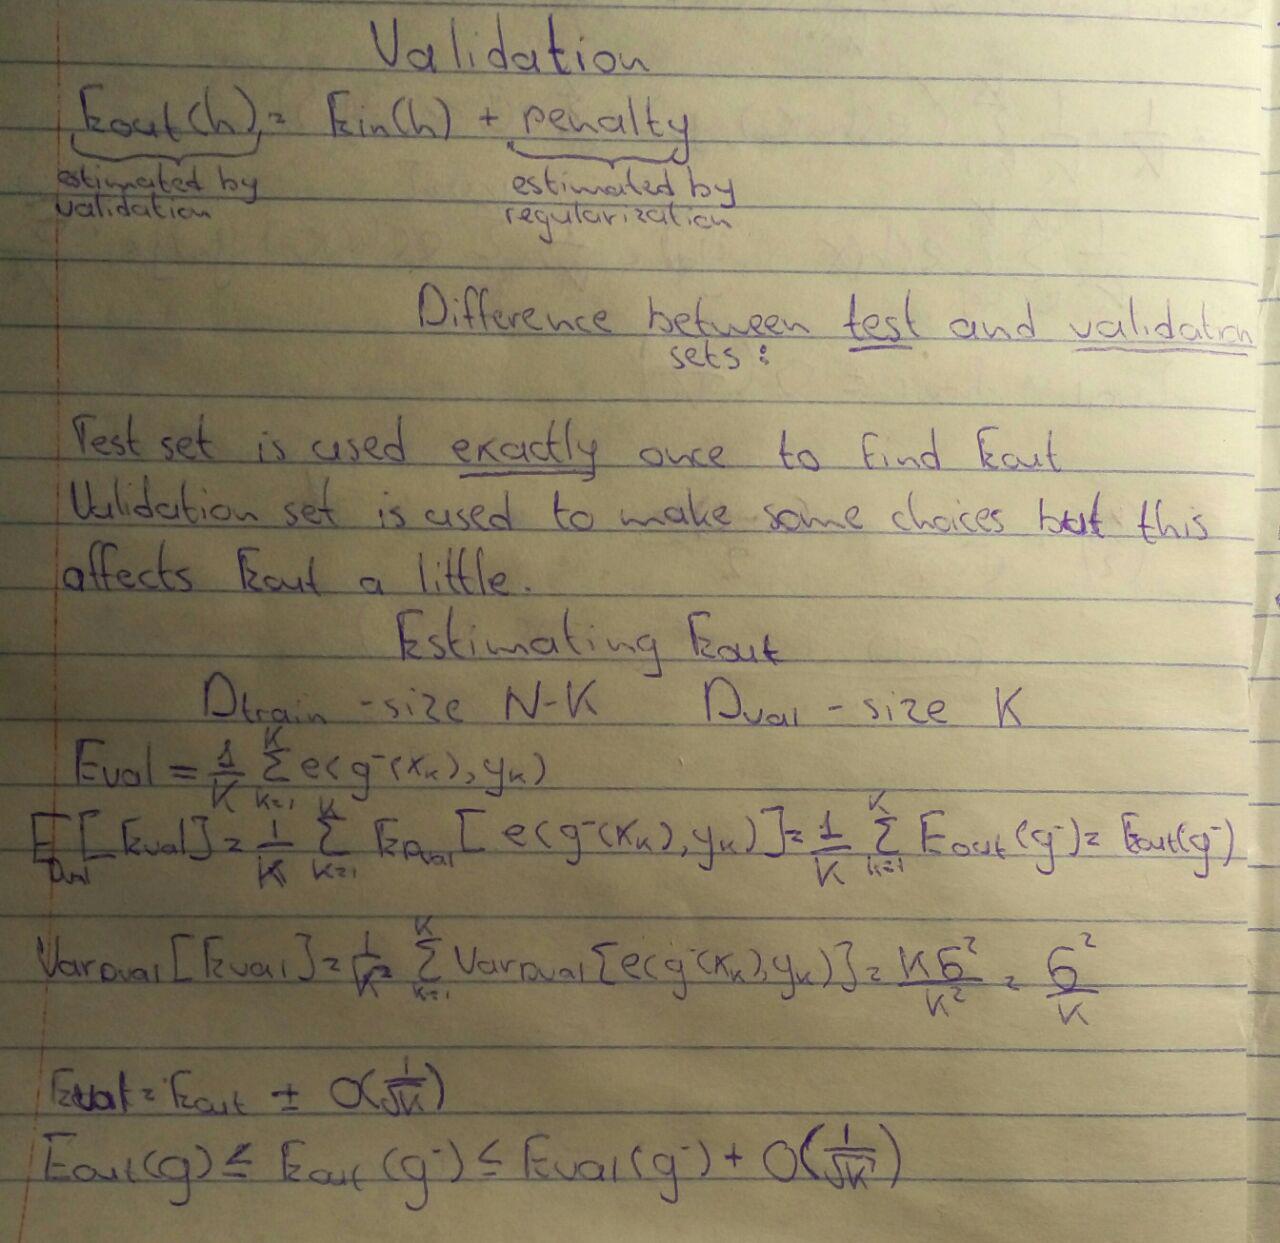 Validation
Eout(h) = Ein(h) + penalty
estimated by validation
estimated by regularization
Difference between test and validation
sets:
Test set is used exactly once to find Eout
Validation set is used to make some choices but this
affects Eout a little.
Estimating Eout
Dtrain - size N-K Dval - size K
Eval = 1/K Σ_{k=1}^{K} e(g⁻(xₖ), yₖ)
E_Dval[Eval] = 1/K Σ_{k=1}^{K} E_Dval[e(g⁻(xₖ), yₖ)] = 1/K Σ_{k=1}^{K} Eout(g⁻) = Eout(g⁻)
Var_Dval[Eval] = 1/K² Σ_{k=1}^{K} Var_Dval[e(g⁻(xₖ), yₖ)] = Kσ²/K² = σ²/K
Eval = Eout ± O(1/√K)
Eout(g) ≤ Eout(g⁻) ≤ Eval(g⁻) + O(1/√K)